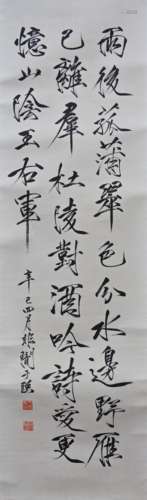 雨後菰蒲翠色分水邊野雁
已離群杜陵對酒吟詩處更
憶山陰王右軍
辛巳四月